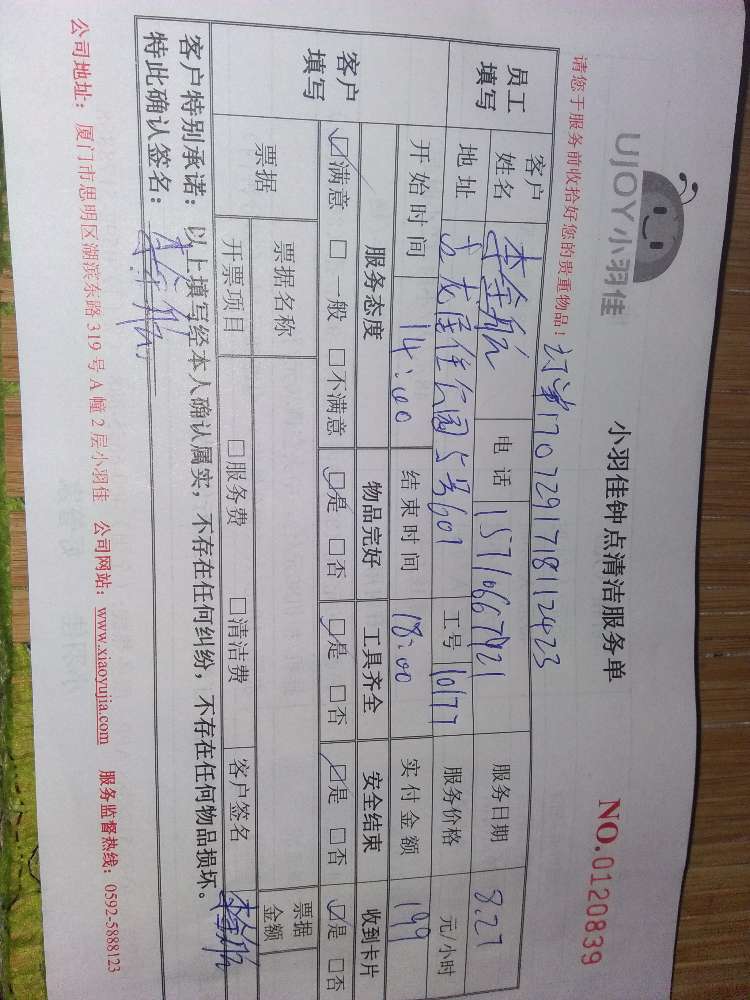 UJOY小羽佳
小羽佳钟点清洁服务单
NO.0120839
请您于服务前收拾好您的贵重物品！
订单17072917181112423
员工填写
客户姓名 李金 电话 服务日期 8.27
地址 龙 佳公园5号601 工号 10177 服务价格 元/小时
开始时间 14:00 结束时间 18:00 实付金额 199
客户填写
服务态度 物品完好 工具齐全 安全结束 收到卡片
☑满意 □一般 □不满意 ☑是 □否 ☑是 □否 ☑是 □否 ☑是 □否
票据 票据名称 票据金额
开票项目 □服务费 □清洁费 客户签名
客户特别承诺：以上填写经本人确认属实，不存在任何纠纷，不存在任何物品损坏。
特此确认签名：
公司地址：厦门市思明区湖滨东路319号A幢2层小羽佳 公司网站：www.xiaoyujia.com 服务监督热线：0592-5888123